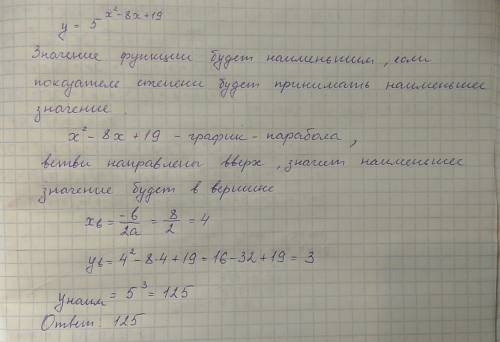 y = 5^{x²-8x+19}
Значение функции будет наименьшим, если
показатель степени будет принимать наименьшее
значение.
x² - 8x + 19 - график - парабола,
ветви направлены вверх, значит наименьшее
значение будет в вершине
x_в = -b/2a = 8/2 = 4
y_в = 4² - 8·4 + 19 = 16 - 32 + 19 = 3
y_наим = 5³ = 125
Ответ: 125